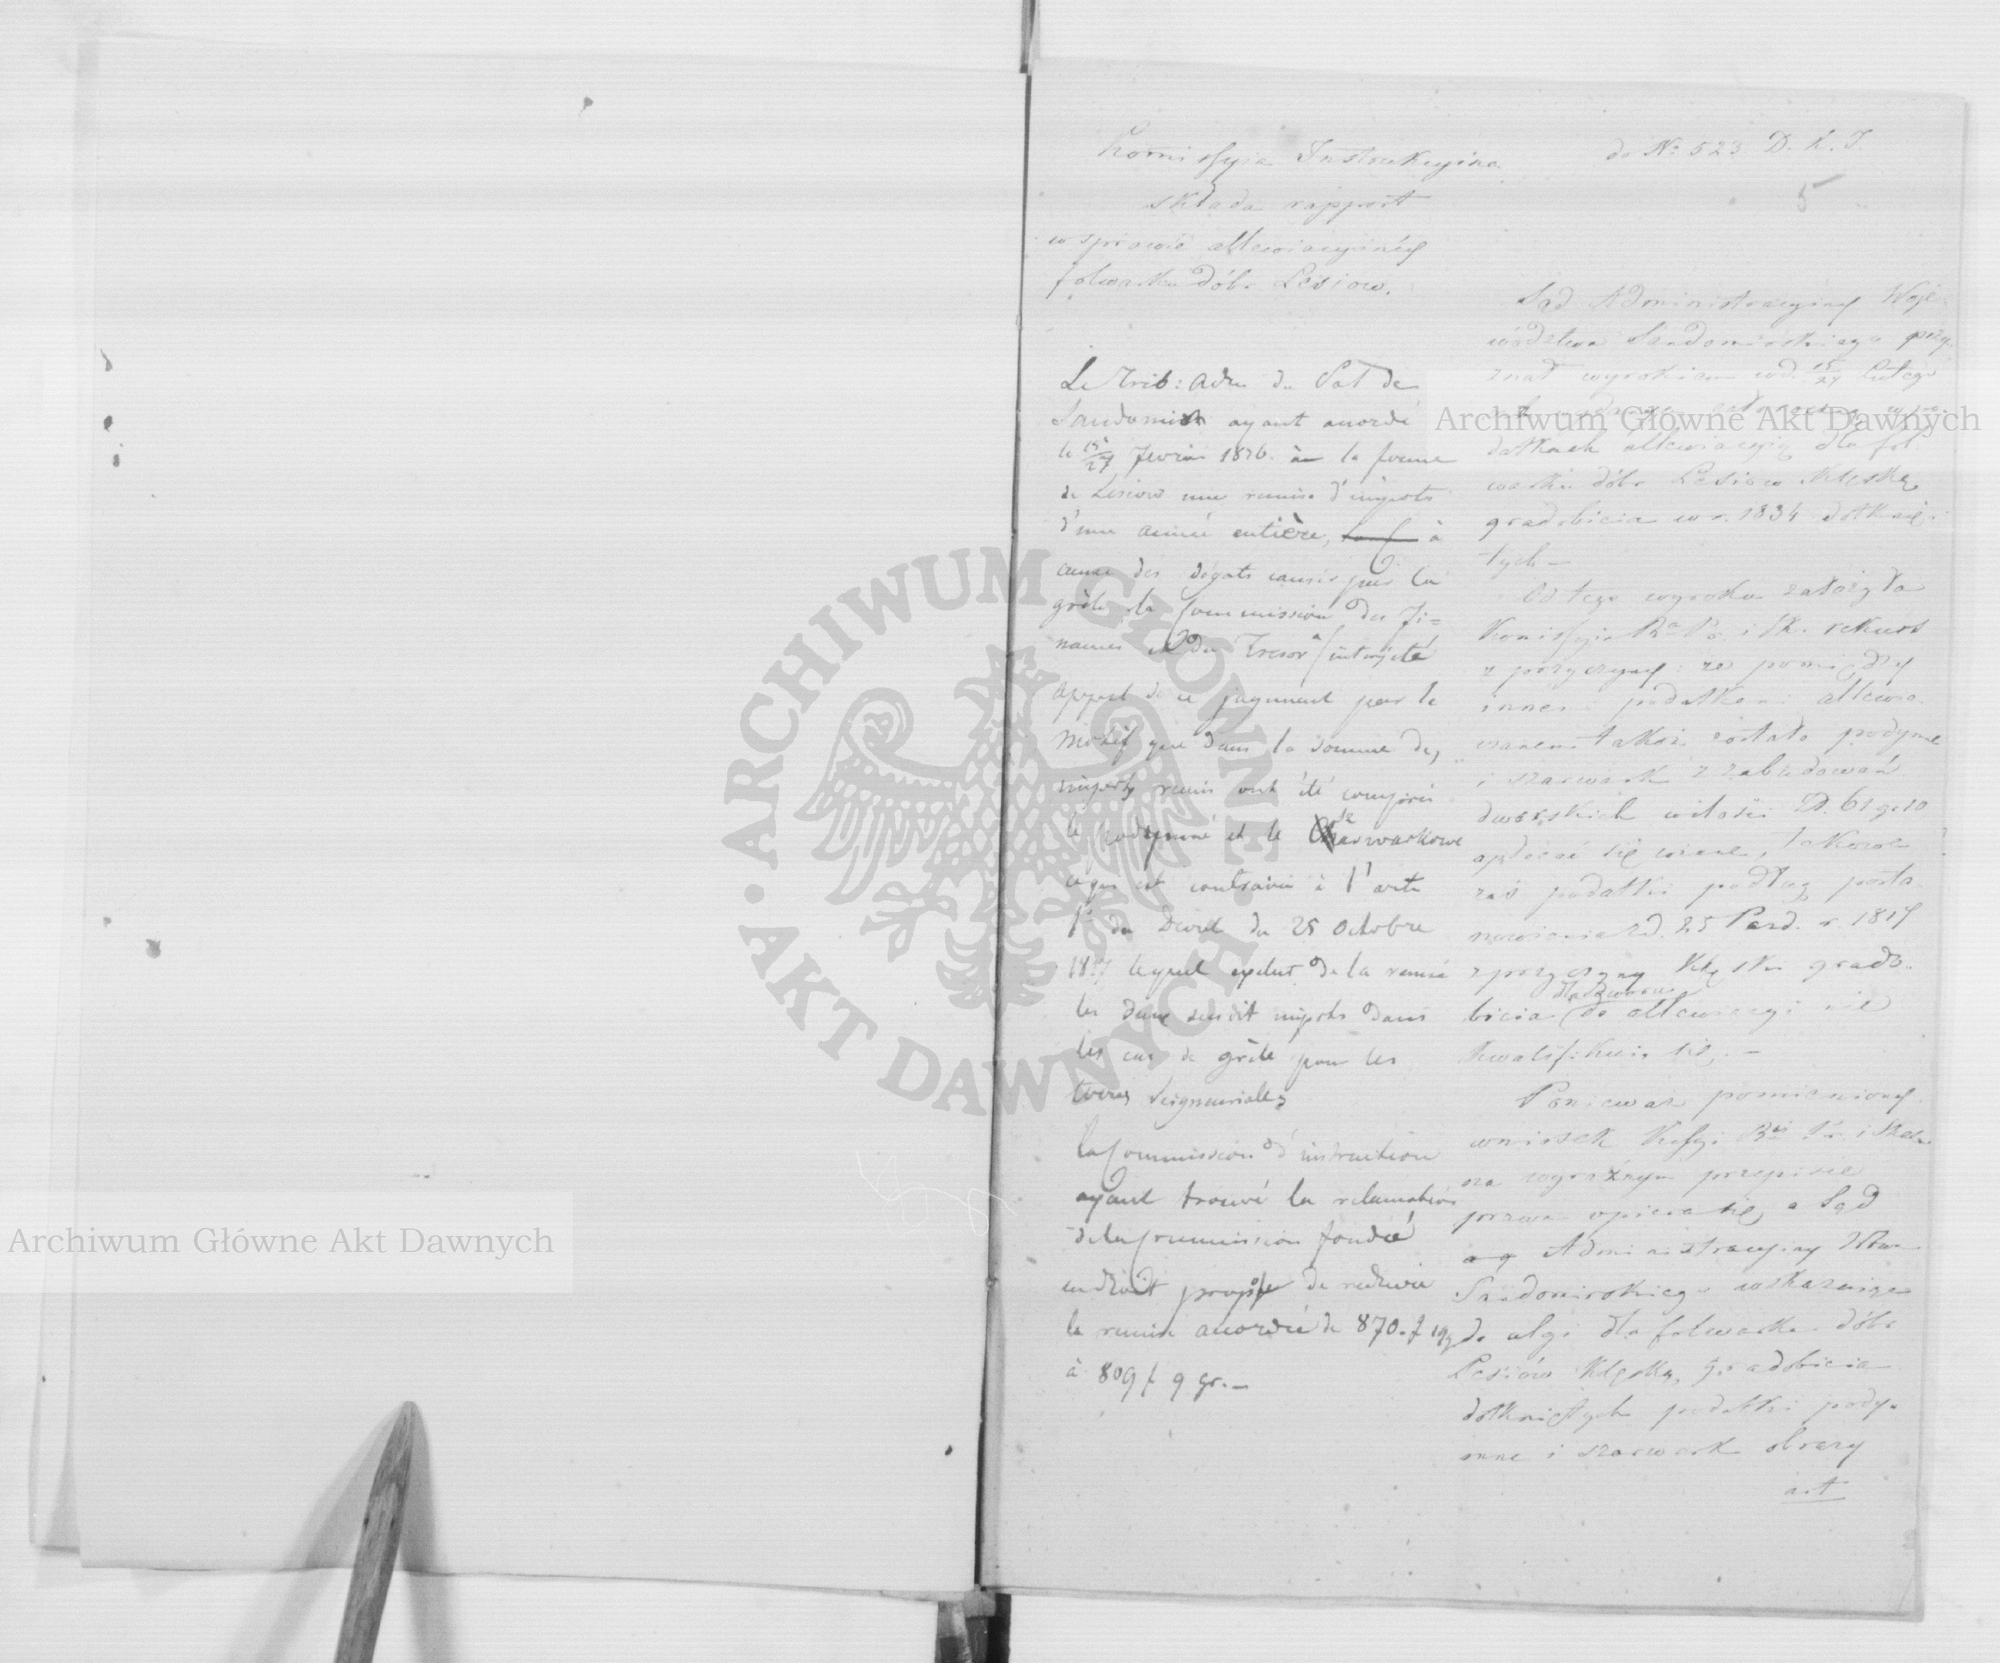 Komissyia Instrukcyina
składa rapport
w sprawie allewiacyinéy
folwarku dóbr Lesiow.
do N° 523 D. K. I.
5
Le Trib: Adm du Pal de
Sandomir ayant accordé
le 15/27 Fevrier 1836. à la ferme
de Lesiow une remise d'impots
d'une année entière, à
cause des dégats causés par la
grêle, la Commission des Fi=
nances et du Tresor a interjeté
appel de ce jugement par le
motif que dans la somme des
impots remis ont été compris
le podymné et le Szarwarkowe
ce qui est contraire à l'arte
1er du Décret du 25 Octobre
1817 lequel exclut de la remise
les deux susdit impots dans
les cas de grêle pour les
terres seigneuriales
La Commission d'instruction
ayant trouvé la reclamation
de la Commission fondée
en droit propose de reduire
la remise accordée de 870. f 19 g
à 809 f 9 gr.—
Sąd Administracyiny Woje
wództwa Sandomirskiego przy
znał wyrokiem z d. 15/27 Lutego
datkach allewiacyią dla fol
warku dóbr Lesiow klęską
gradobicia w r. 1834 dotknię
tych—
Od tego wyroku założyła
Komissyia R. P. i Sk. rekurs
z przyczyny: że pomiędzy
innemi podatkami allewio
wanem także zostało podymne
i szarwark z zabudowań
dworskich w ilości Zł. 61 g. 10
opłacać się winne, takowe
zaś podatki podług posta
nowienia z d. 25 Pazd. r. 1817
z przyczyny klęski grado
bicia do allewiacyi nie
kwalifikuią się.—
Ponieważ pomieniony
wniosek Kssyi R. P. i Skar
na wyraźnym przepisie
prawa opiera się, a Sąd
Administracyiny Wtwa
Sandomirskiego wskazuiąc
do ulgi dla folwarku dóbr
Lesiów klęską gradobicia
dotkniętych podatki pody
mne i szarwark obrazy
art
Archiwum Główne Akt Dawnych
Archiwum Główne Akt Dawnych
ARCHIWUM GŁÓWNE AKT DAWNYCH